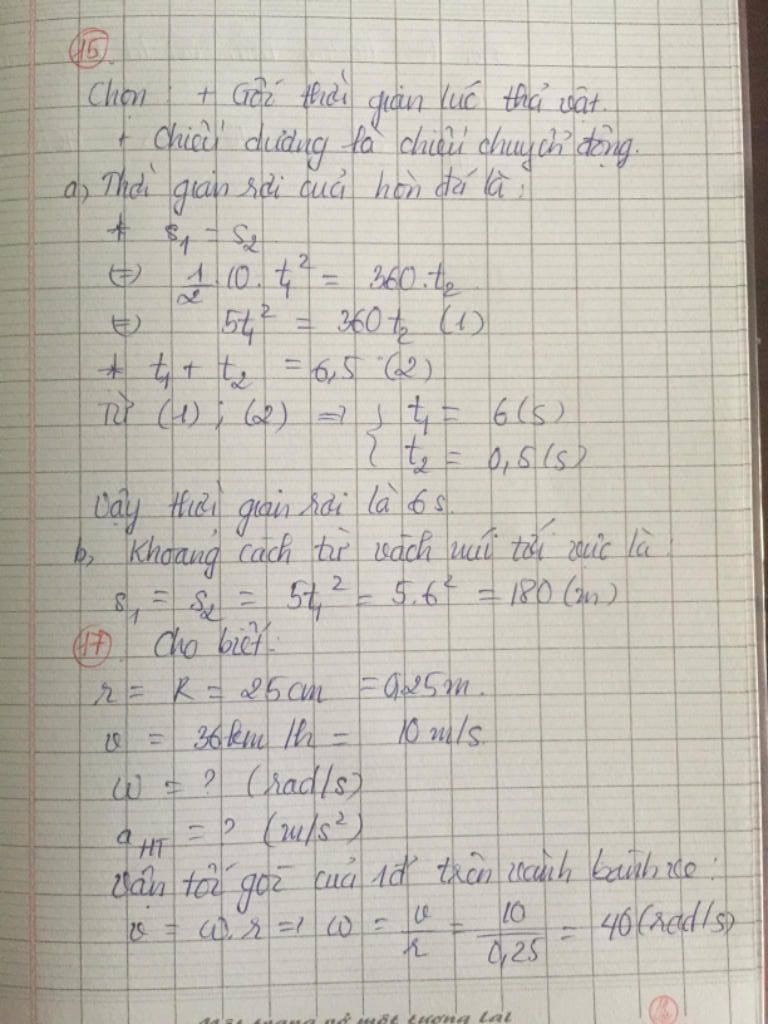 15
Chọn : + Gốc thời gian lúc thả vật.
+ Chiều dương là chiều chuyển động.
a, Thời gian rơi của hòn đá là :
* s₁ = s₂
⇔ 1/2 10. t₁² = 360. t₂
⇔ 5t₁² = 360t₂ (1)
* t₁ + t₂ = 6,5 (2)
Từ (1) ; (2) ⇒ { t₁ = 6 (s)
{ t₂ = 0,5 (s)
Vậy thời gian rơi là 6s.
b, Khoảng cách từ vách núi tới vực là :
s₁ = s₂ = 5t₁² = 5.6² = 180 (m)
17 Cho biết:
r = R = 25cm = 0,25m.
v = 36km/h = 10m/s.
ω = ? (rad/s)
aHT = ? (m/s²)
Vận tốc góc của 1đ trên vành bánh xe :
v = ω.r ⇒ ω = v/r = 10/0,25 = 40 (rad/s)